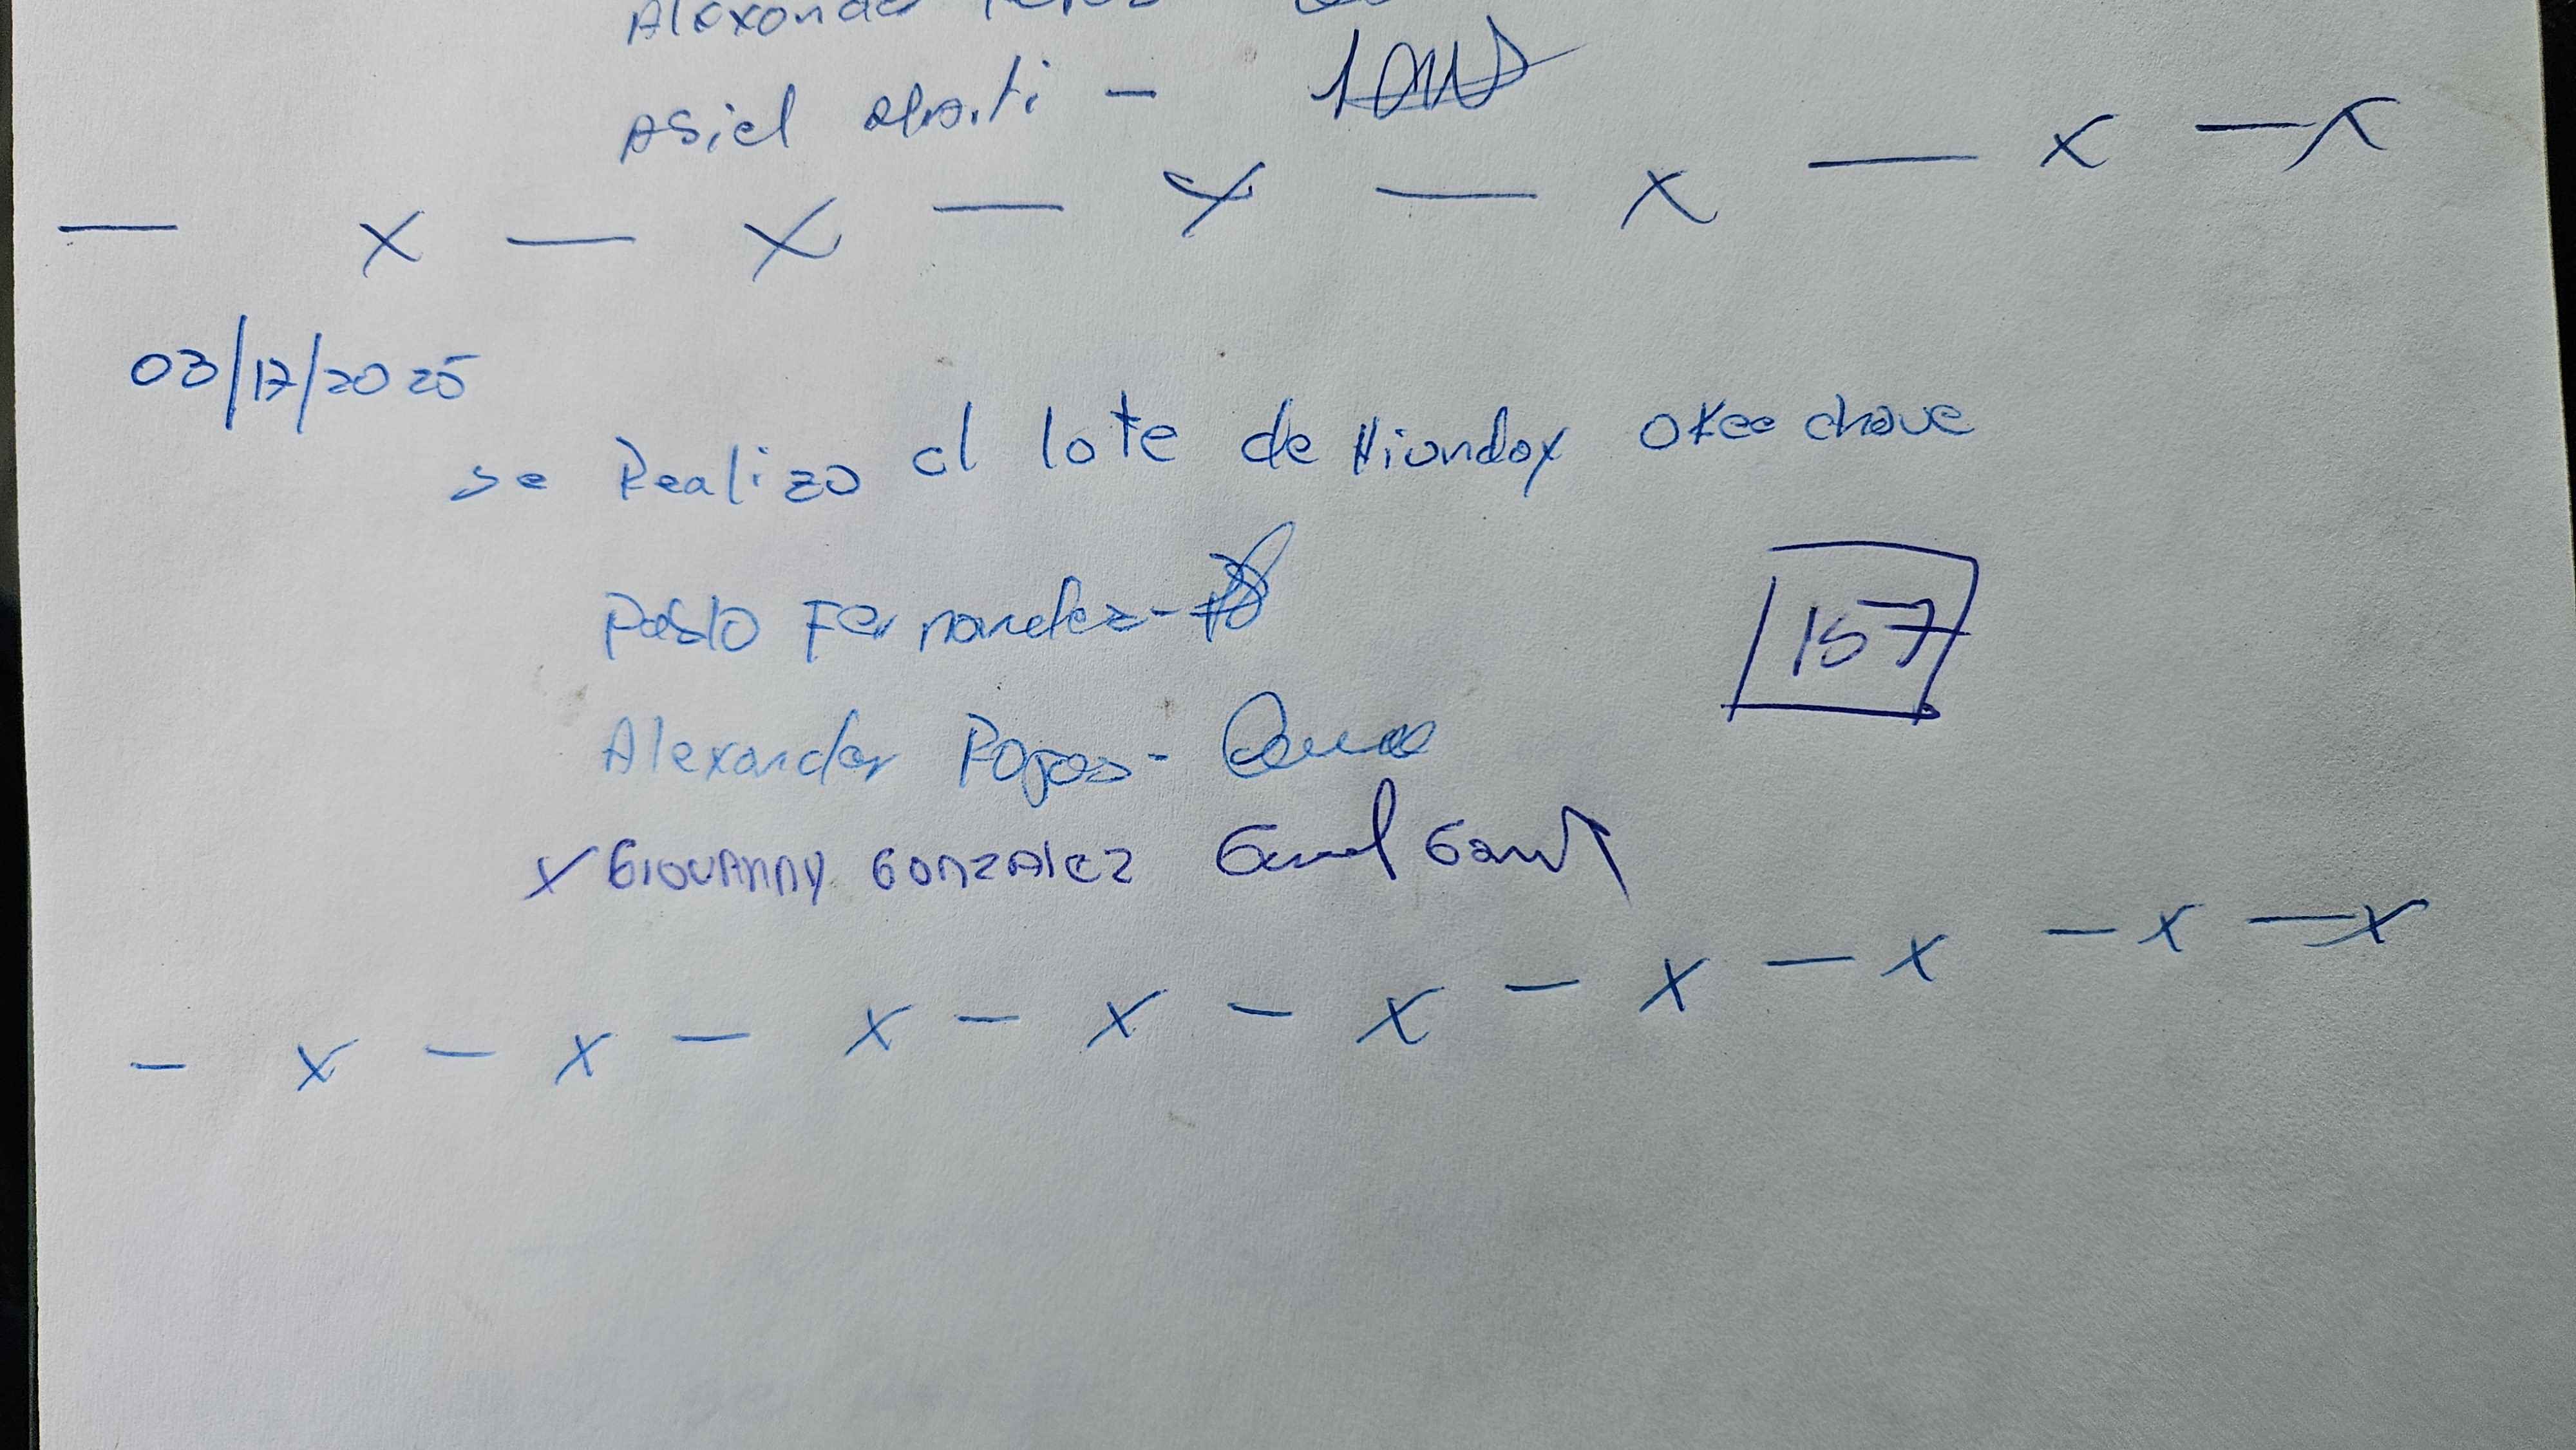 Alexander
Asiel
— x — x — x — x — x — x
03/17/2025
se Realizo el lote de Hiunday okee chove
Pablo Fernandez -
157
Alexander Rojas -
x Giovanny Gonzalez
- x - x - x - x - x - x - x - x - x